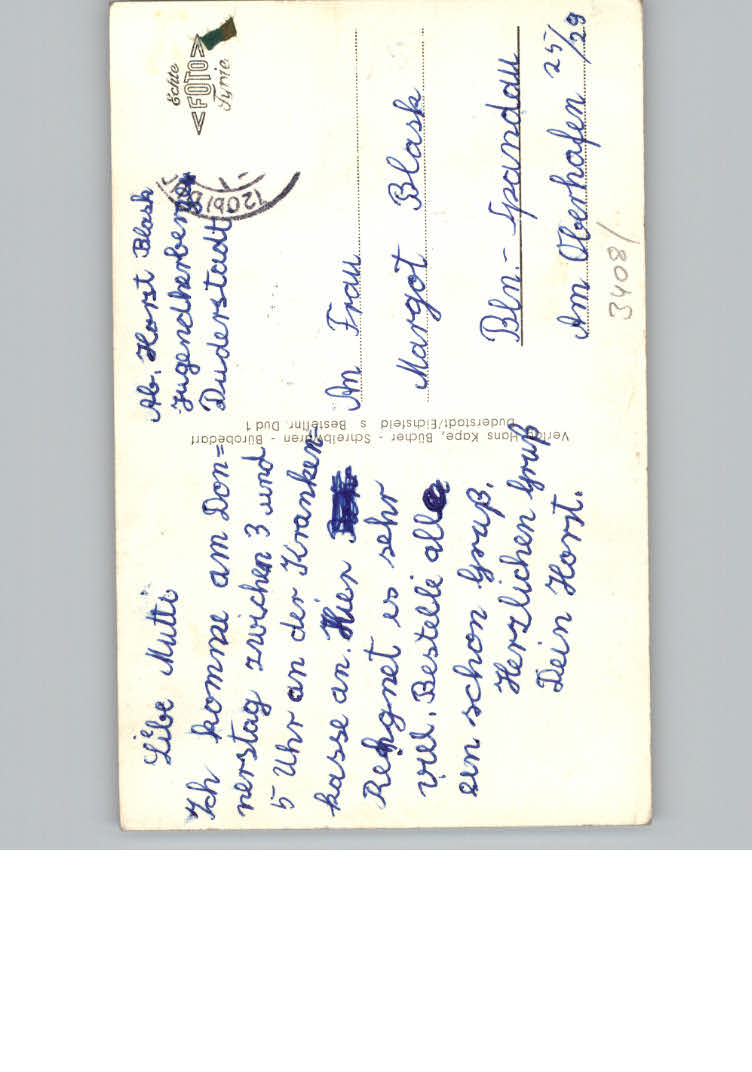 Liebe Mutti
Ich komme am Don=
nerstag zwichen 3 und
5 Uhr an der Kranken=
kasse an. Hier
Regnet es sehr
viel. Bestelle alle
ein schon Gruß.
Herzlichen Gruß
Dein Horst.
Verlag Hans Kape, Bücher - Schreibwaren - Bürobedarf
Duderstadt/Eichsfeld s Bestellnr. Dud 1
Ab. Horst Blask
Jugendherberge
Duderstadt
Echte
<FOTO>
An Frau
Margot Blask
Bln.- Spandau
Am Oberhafen 25/29
3408/